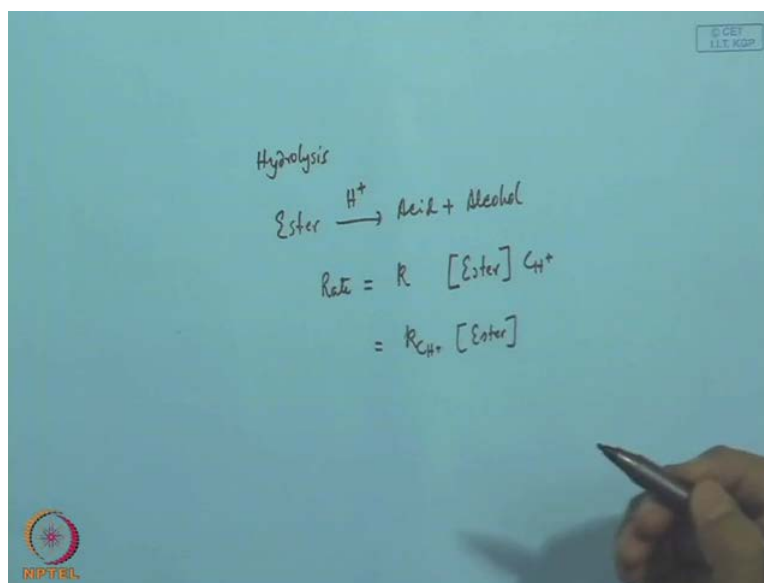 © CET
I.I.T. KGP
Hydrolysis
Ester —H⁺→ Acid + Alcohol
Rate = k [Ester] C_H⁺
= k_C_H⁺ [Ester]
NPTEL